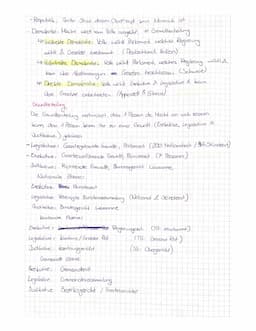 - Republik: Sicht das
Demokratie: Macht geht vom Volk aus, in Gewaltenteilung
→ indirekte Demokratie: Volk wählt Parlament, welches Regierung
wählt & Gesetze entscheidet (Deutschland, Italien)
→ Demokratie: Volk wählt Parlament, welches Regierung wählt &
kann über Abstimmungen Gesetze beschliessen (Schweiz)
→ Direkte Demokratie: Volk wählt Exekutive & Legislative & kann
über Gesetze entscheiden (Appenzell & Glarus)
Gewaltenteilung
Die Gewaltenteilung verhindert, dass 1 Person die Macht an sich reissen
kann, denn 1 Person kann nur zu einer Gewalt (Exekutive, Legislative &
Judikative) gehören
- Legislative: Gesetzgebende Gewalt, Parlament (200 Nationalrat / 46 Ständerat)
- Exekutive: Gewalt, Bundesrat (7 Personen)
Judikative: Richtende Gewalt, Bundesgericht Lausanne,
Nationale Ebene:
Exekutive: Bundesrat
Legislative: Vereinigte Bundesversammlung (National & Ständerat)
Judikative: Bundesgericht Lausanne
Kantonale Ebene:
Exekutive: Regierungsrat
Legislative: Kantons/Grosser Rat
Judikative: Kantonsgericht Obergericht)
Gemeinde Ebene:
Exekutive: Gemeinderat
Legislative: Gemeindeversammlung
Judikative: Bezirksgericht / Friedensrichter